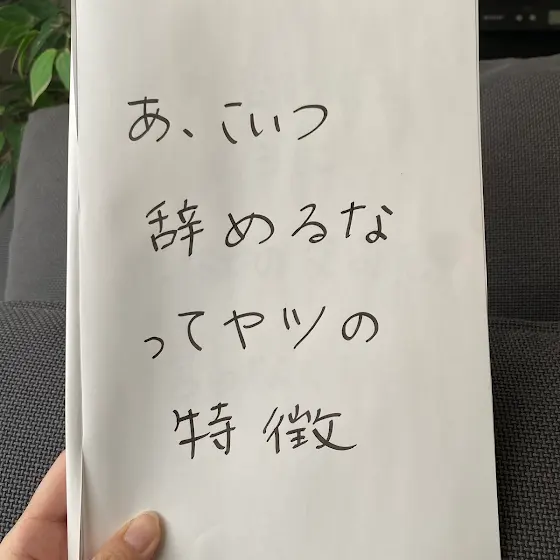 あ、こいつ
辞めるな
ってヤツの
特徴